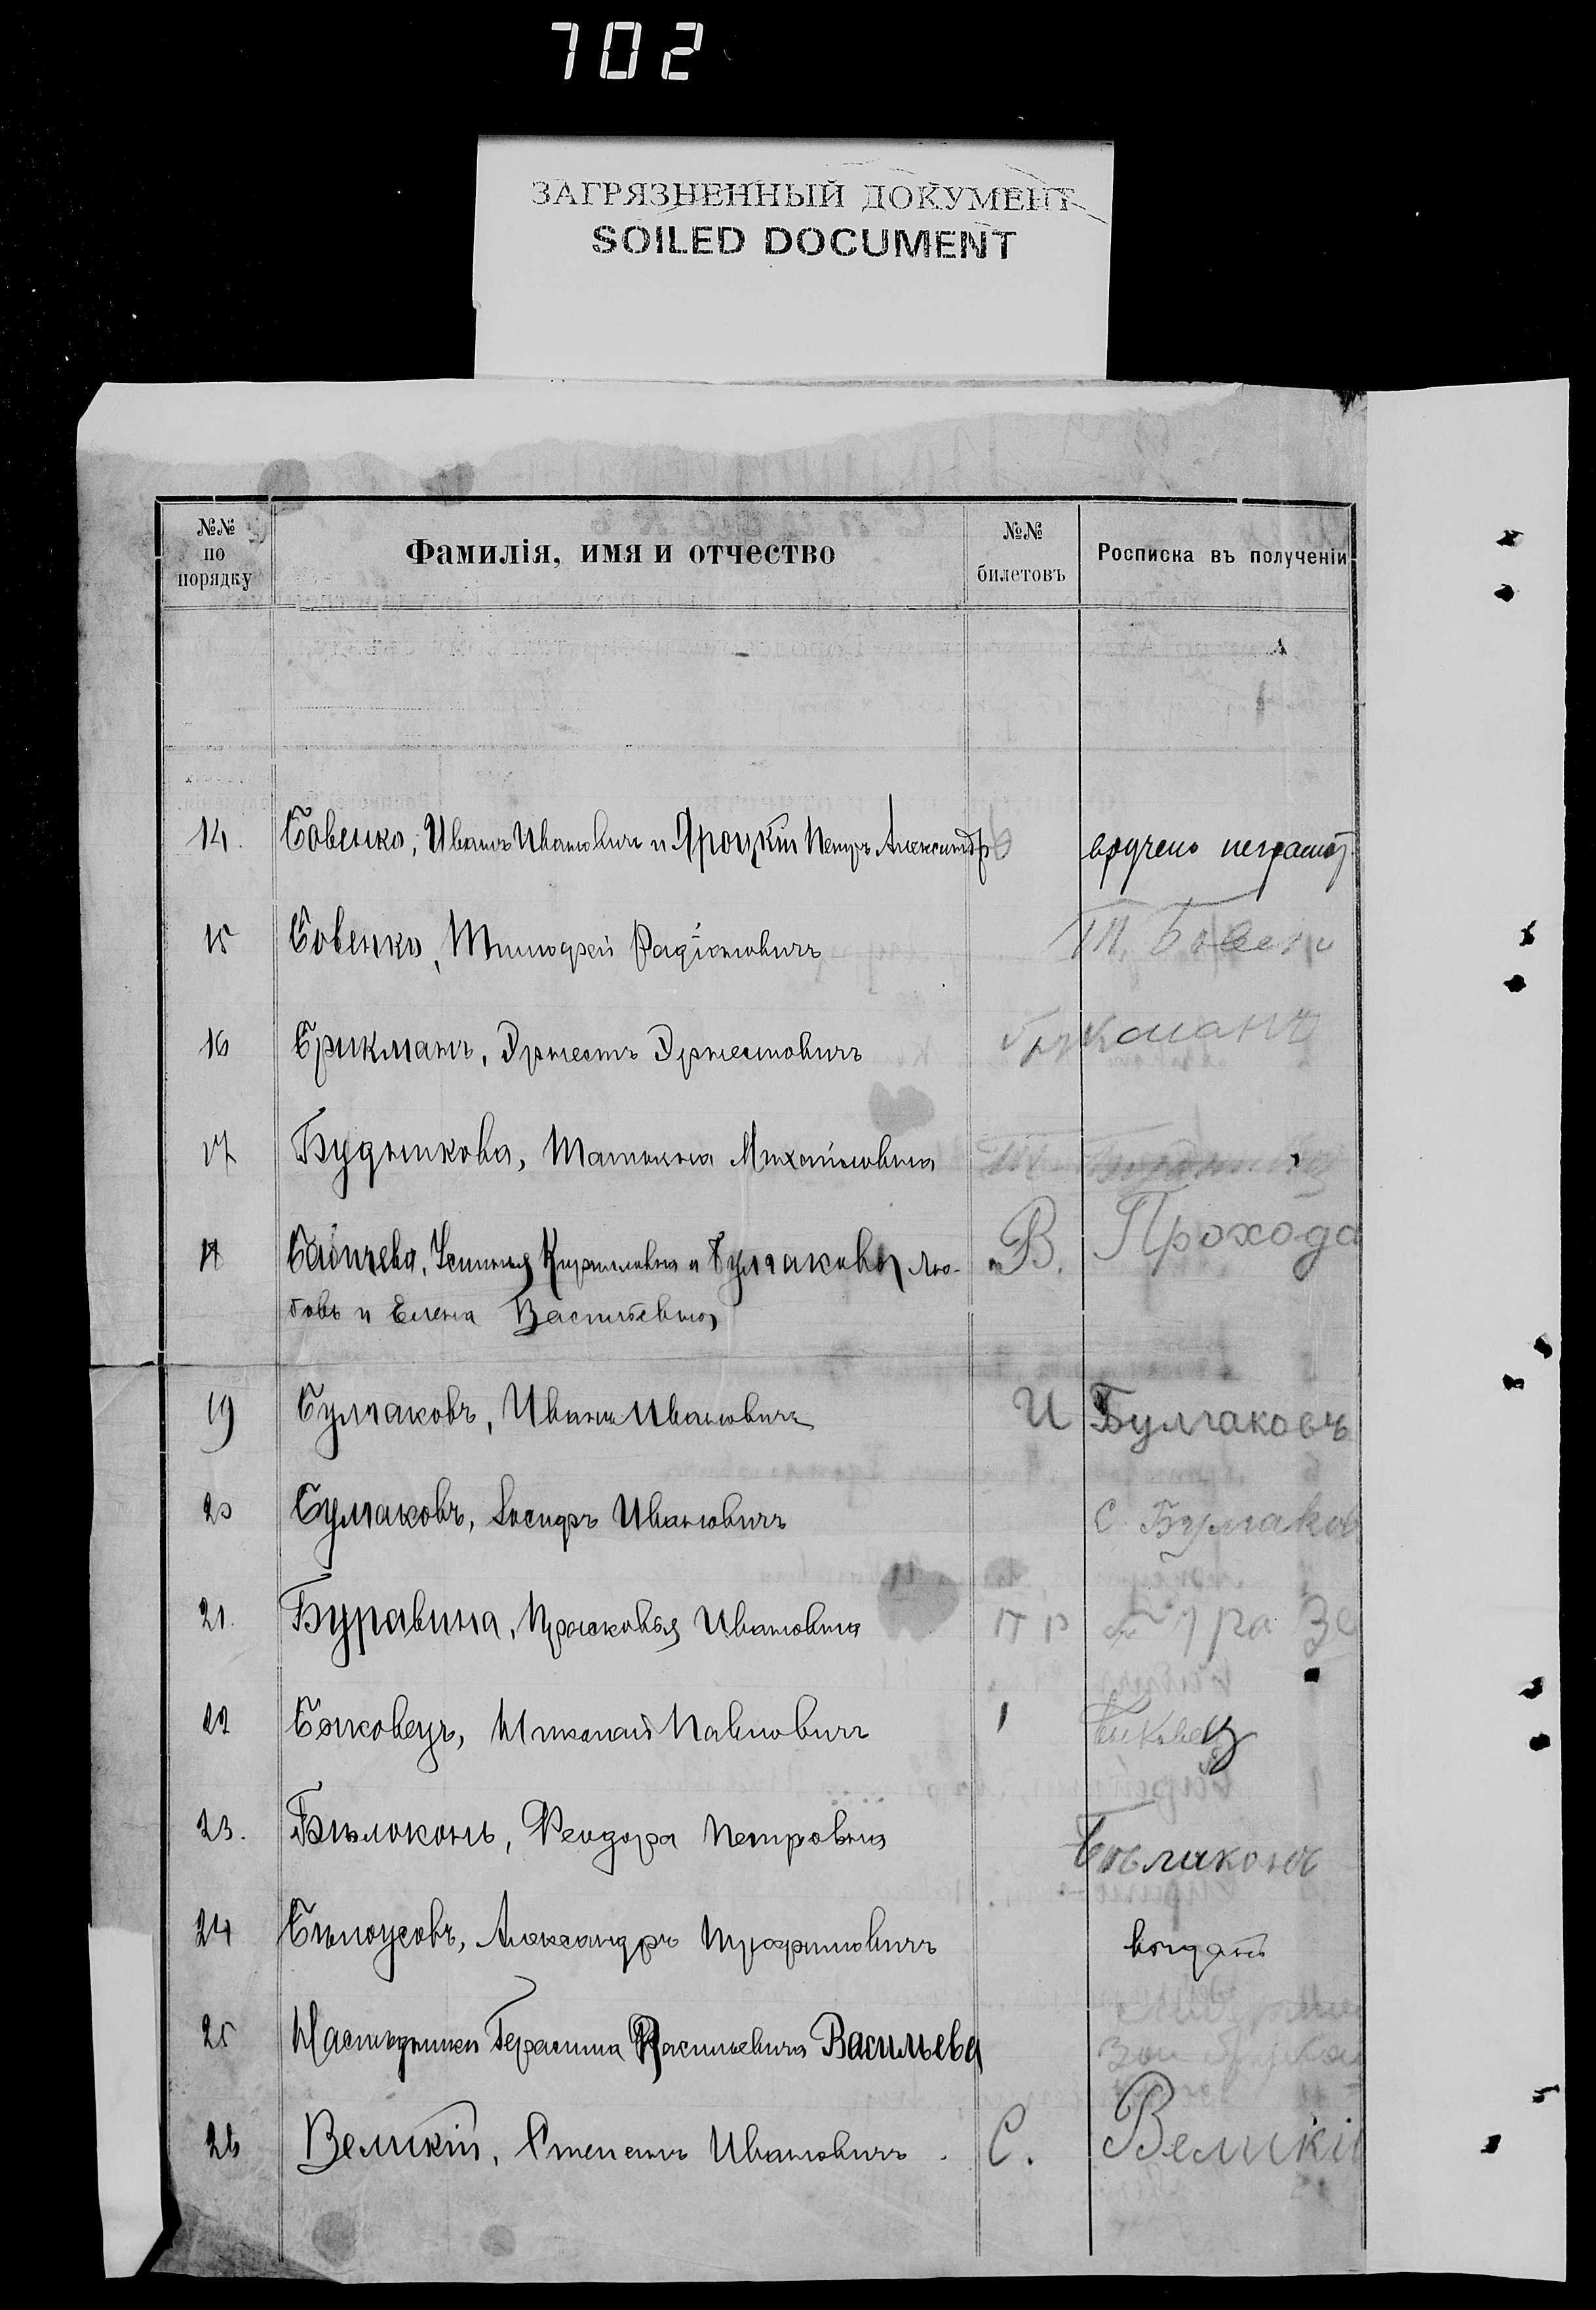 702
ЗАГРЯЗНЕННЫЙ ДОКУМЕНТ
SOILED DOCUMENT
№№ по порядку
Фамилія, имя и отчество
№№ билетовъ
Росписка въ полученіи
14. Бовенко, Иванъ Ивановичъ и Яроцкій Петръ Александр. вручено неграмот.
15 Бовенко, Тимофей Радіоновичъ Т. Бовенко
16 Брикманъ, Эрнестъ Эрнестовичъ Брикманъ
17 Будникова, Татьяна Михайловна Т.
18 Кирилловна и Булгаковы Лю-
бовь и Елена Васильевны В. Прохода
19 Булгаковъ, Иванъ Ивановичъ И Булгаковъ
20 Булгаковъ, Іосифъ Ивановичъ С. Булгаков
21. Буравина, Прасковья Ивановна
22 Быковецъ, Николай Павловичъ Быковец
23. Бѣлоконь, Феодора Петровна Бѣлаконь
24 Бѣлоусовъ, Александръ Трофимовичъ
25 Наслѣдники Герасима Васильевича Васильева
26 Великій, Степанъ Ивановичъ. С. Великій